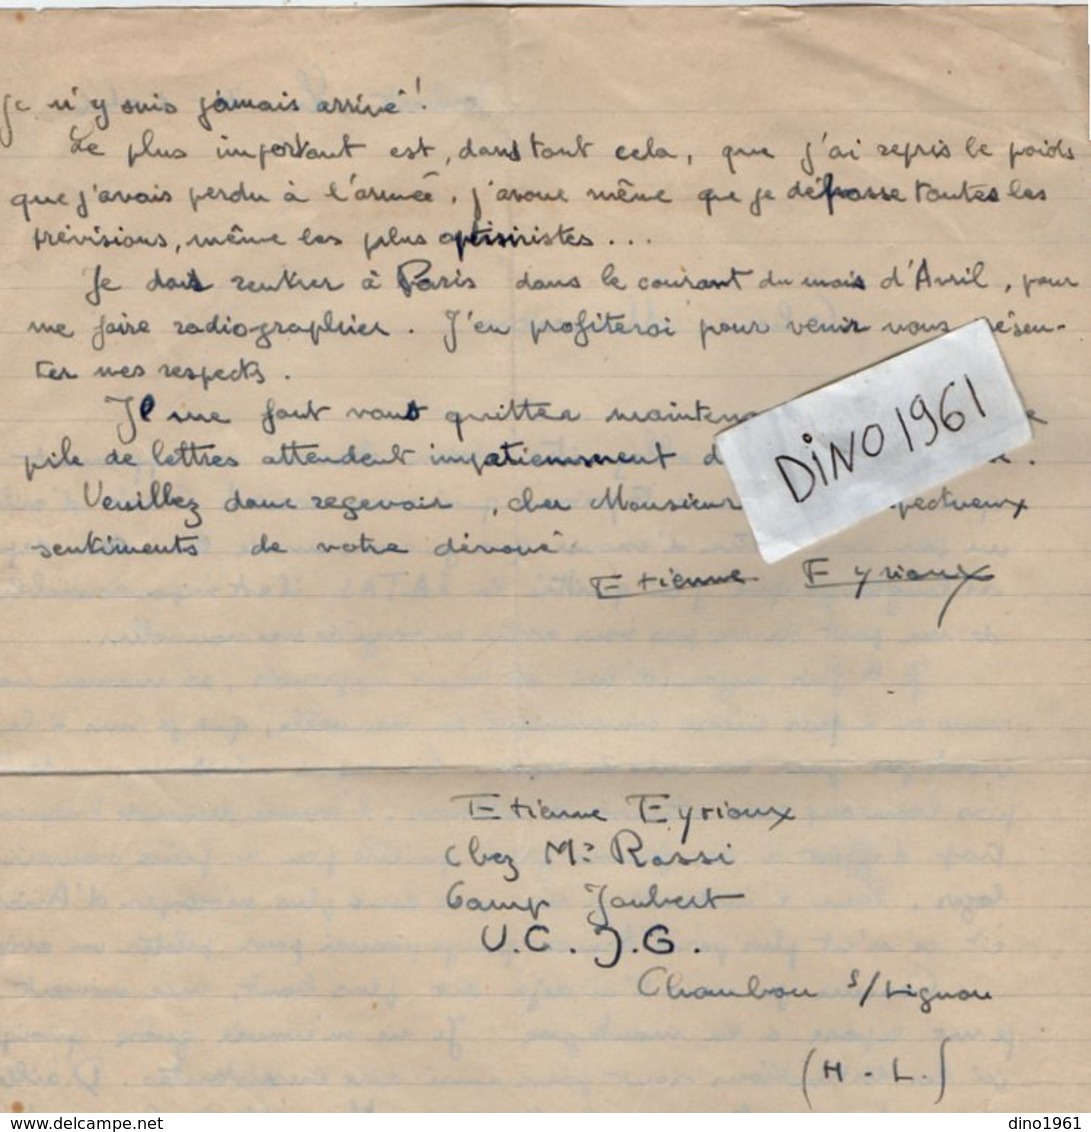 Je n'y suis jamais arrivé !
Le plus important est, dans tout cela, que j'ai repris le poids
que j'avais perdu à l'armée. j'avoue même que je dépasse toutes les
prévisions, même les plus optimistes...
Je dois rentrer à Paris dans le courant du mois d'Avril, pour
me faire radiographier. J'en profiterai pour venir vous présen-
ter mes respects.
Il me faut vous quitter maintenant
pile de lettres attendent impatiemment
Veuillez donc regevoir, cher Monsieur pectueux
sentiments de votre dévoué
Etienne Eyrioux
DiNO1961
Etienne Eyrioux
chez Mr Rossi
Camp Joubert
U.C.J.G.
Chambon s/Lignon
(H.L.)
dino1961